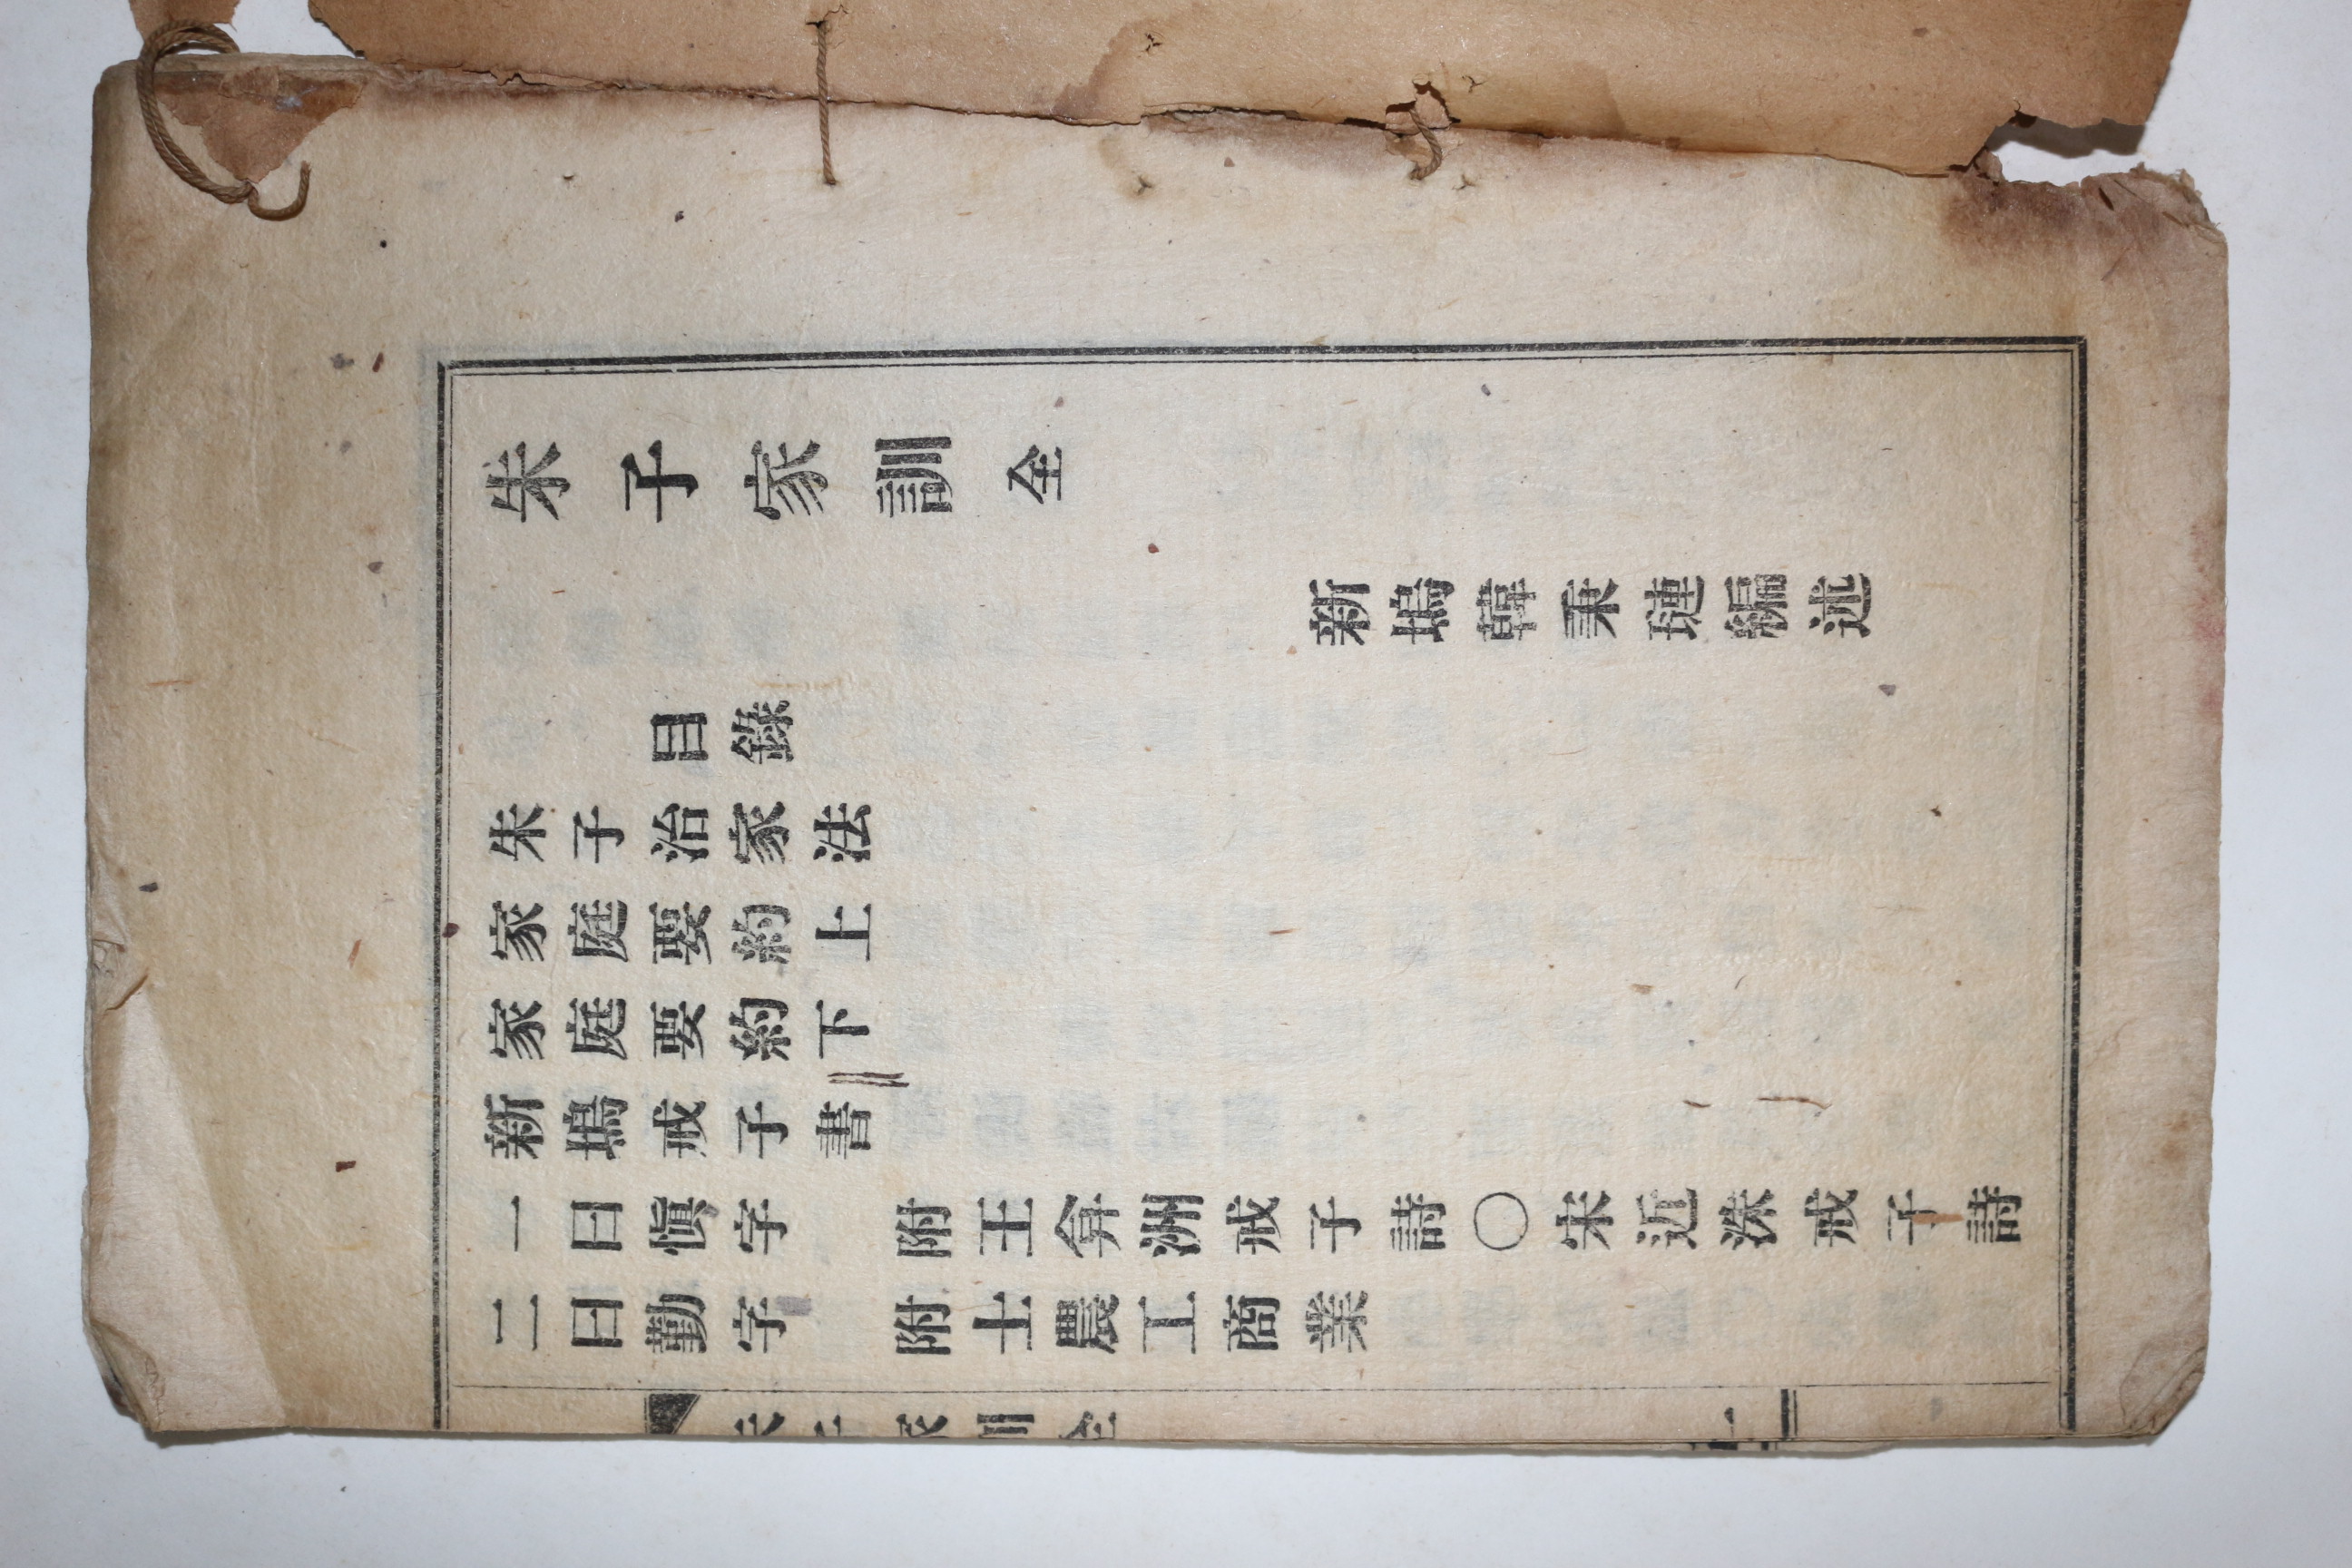 朱子家訓 全
新塢韓秉璉編述
目錄
朱子治家法
家庭要約上
家庭要約下
新塢戒子書
一曰愼字 附王弇洲戒子詩○宋近洙戒子詩
二曰勤字 附士農工商業
朱子家訓全
一